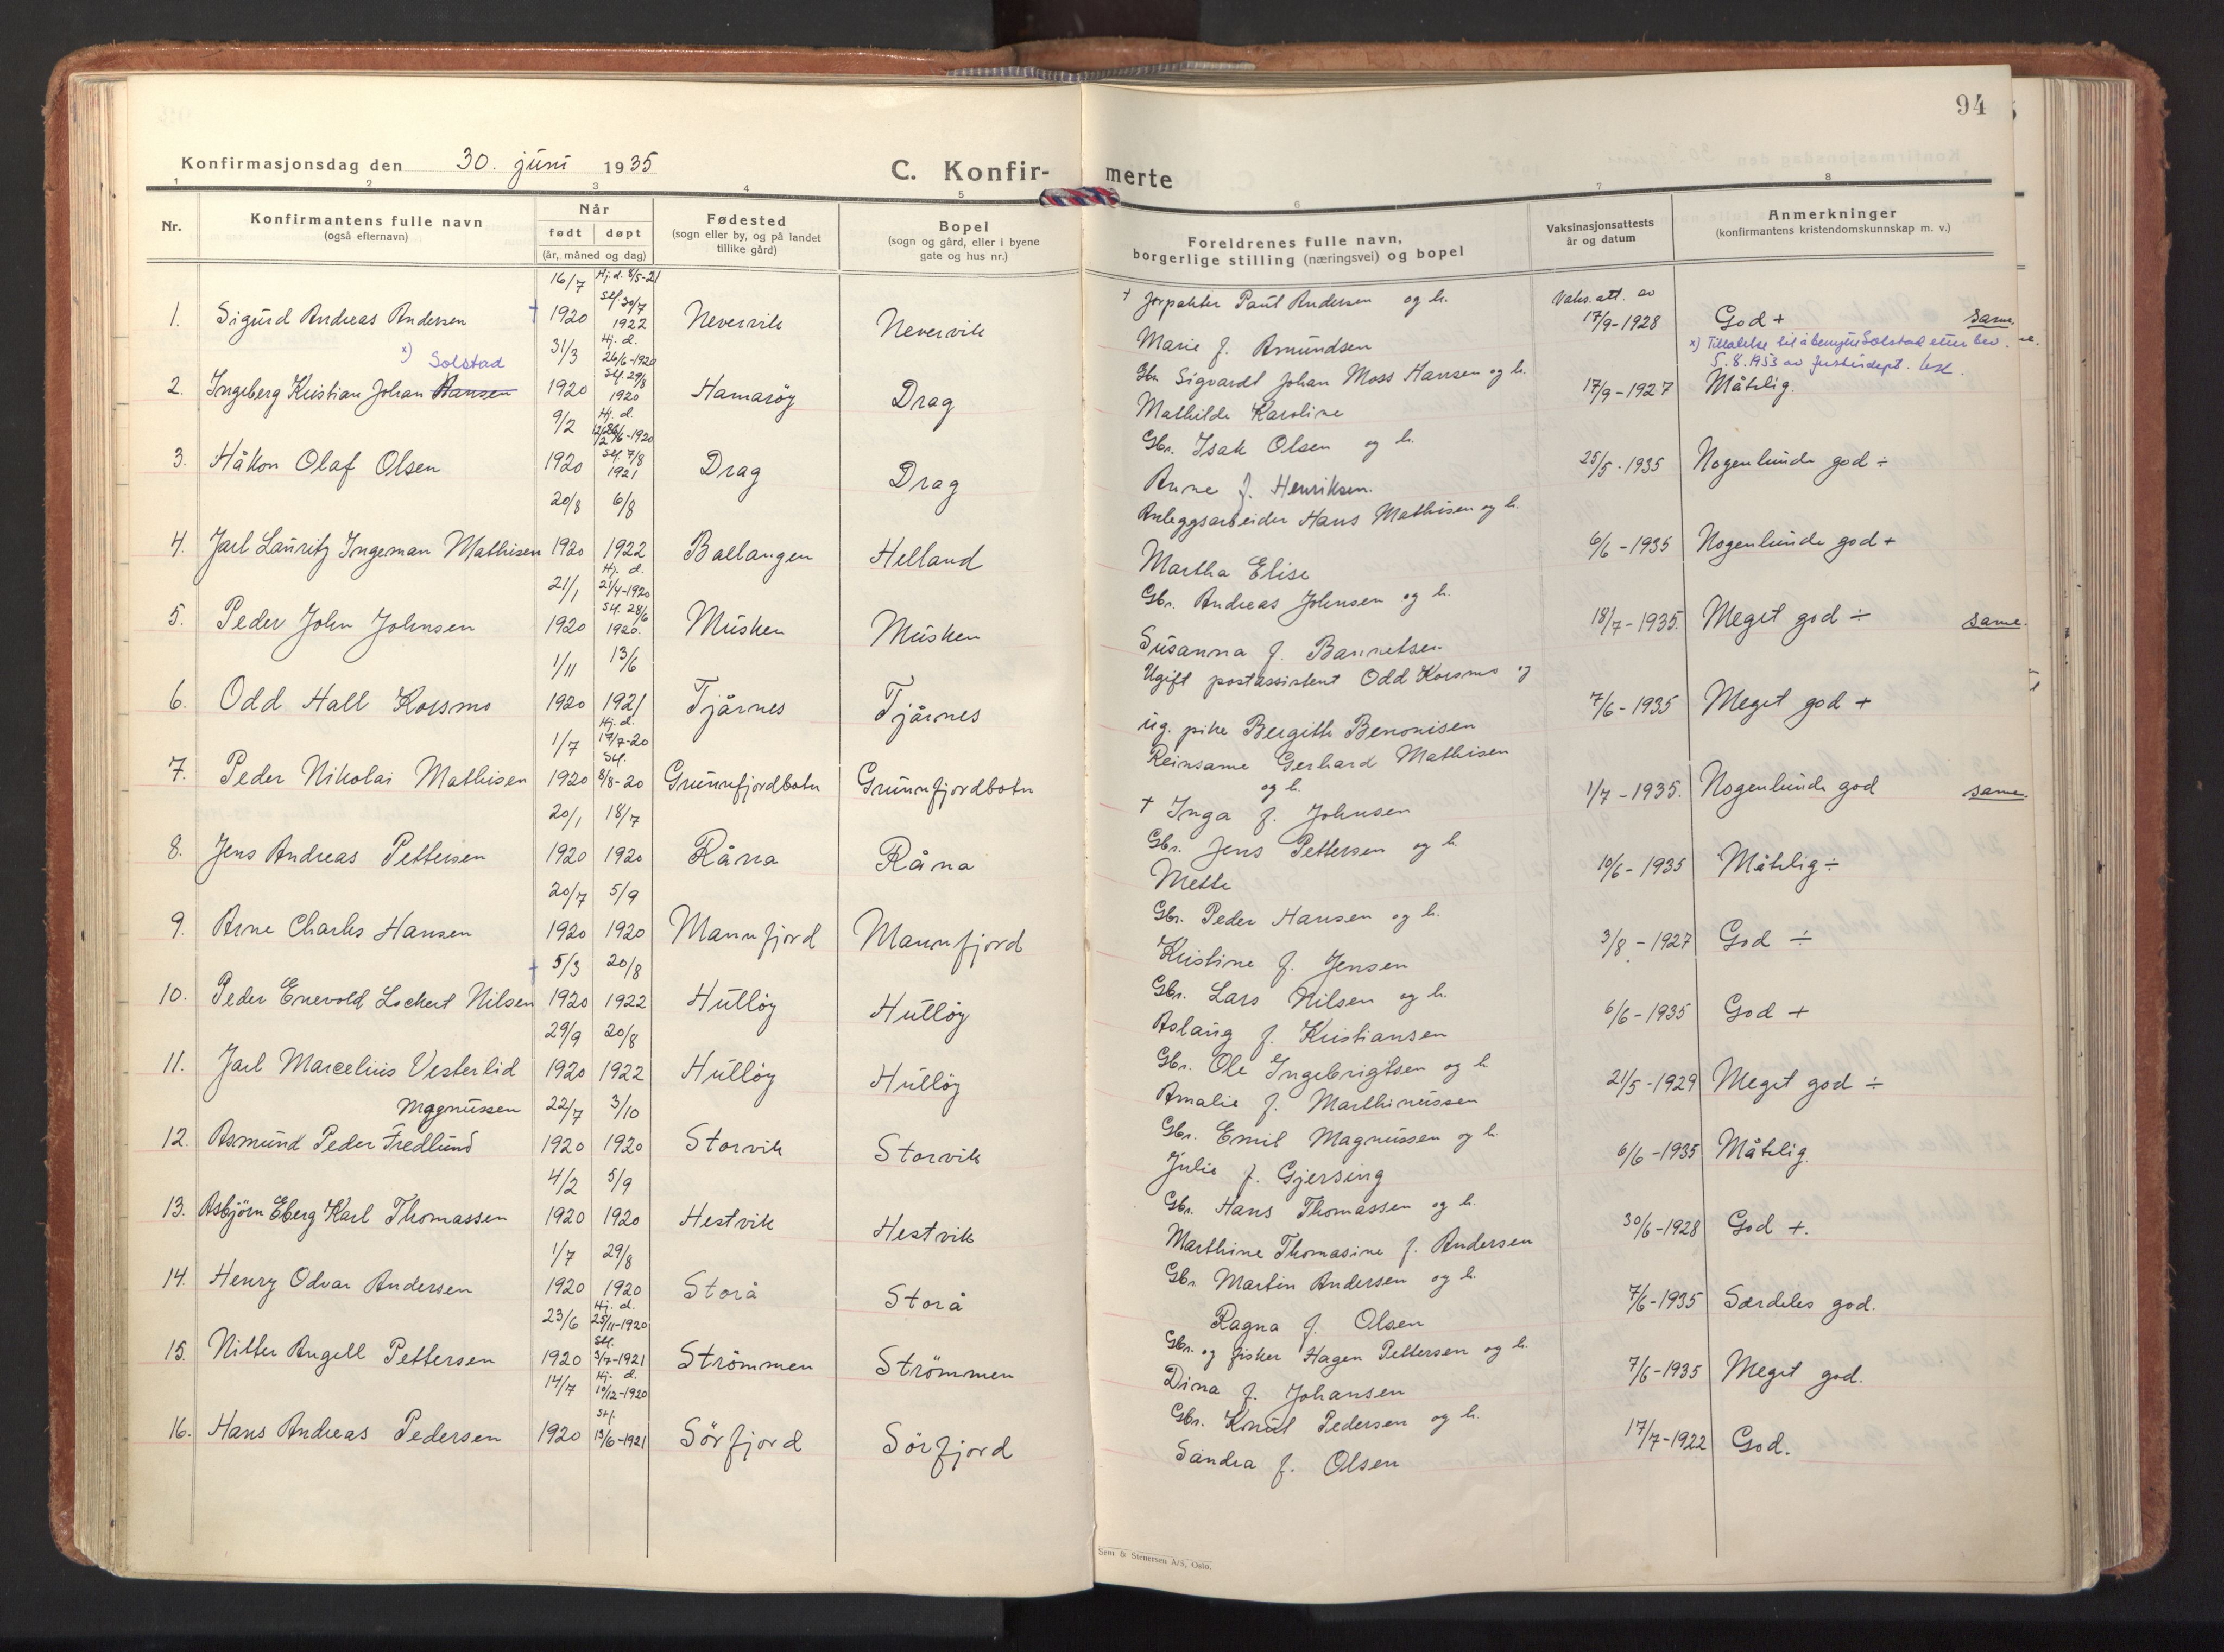 94
Konfirmasjonsdag den 30. juni 1935
C. Konfir-
merte
1 2 3 4 5 6 7 8
Nr.
Konfirmantens fulle navn
(også efternavn)
Når
født døpt
(år, måned og dag)
Fødested
(sogn eller by, og på landet
tillike gård)
Bopel
(sogn og gård, eller i byene
gate og hus nr.)
Foreldrenes fulle navn,
borgerlige stilling (næringsvei) og bopel
Vaksinasjonsattests
år og datum
Anmerkninger
(konfirmantens kristendomskunnskap m. v.)
16/7 Hj. d. 8/5-21
Stf. 30/7
1. Sigurd Andreas Andersen † 1920 1922 Nevervik Nevervik
† Jorpakter Paul Andersen og h.
Marie f. Amundsen
Vaks. att. av
17/9-1928 God + same.
x) Solstad
31/3 Hj. d. 26/6-1920
Stf. 29/8
2. Ingeberg Kristian Johan Hansen 1920 1920 Hamarøy Drag
Gbr. Sigvardt Johan Moss Hansen og h.
Mathilde Karoline
x) Tillatelse til å benytte Solstad etter bev.
5.8.1953 av Justisdept.
17/9-1927 Måtelig.
9/2 Hj. d.
6/6-1920
Stf. 7/8
3. Håkon Olaf Olsen 1920 1921 Drag Drag
Gbr. Isak Olsen og h.
Anne f. Henriksen.
25/5-1935 Nogenlunde god ÷
20/8 6/8
4. Jarl Lauritz Ingeman Mathisen 1920 1922 Ballangen Helland
Anleggsarbeider Hans Mathisen og h.
Martha Elise
6/6-1935 Nogenlunde god +
21/1 Hj. d. 21/4-1920
Stf. 28/6
5. Peder John Johnsen 1920 1920. Musken Musken
Gbr. Andreas Johnsen og h.
Susanna f. Bannetsen
18/7-1935. Meget god ÷ same.
1/11 13/6
6. Odd Hall Korsmo 1920 1921 Tjårnes Tjårnes
Ugift postassistent Odd Korsmo og
ug. pike Bergith Benonisen
7/6-1935 Meget god +
1/7 Hj. d. 17/7-20
Stf.
7. Peder Nikolai Mathisen 1920 8/8-20 Grunnfjordbotn Grunnfjordbotn
Reinsame Gerhard Mathisen
og h.
† Inga f. Johnsen
1/7-1935. Nogenlunde god same.
20/1 18/7
8. Jens Andreas Pettersen 1920 1920 Råna Råna
Gbr. Jens Pettersen og h.
Mette
10/6-1935 Måtelig ÷
20/7 5/9
9. Arne Charles Hansen 1920 1920 Mannfjord Mannfjord
Gbr. Peder Hansen og h.
Kristine f. Jensen
3/8-1927 God ÷
† 5/3 20/8
10. Peder Enevold Lockert Nilsen 1920 1922 Hulløy Hulløy
Gbr. Lars Nilsen og h.
Aslaug f. Kristiansen
6/6-1935 God +
29/9 20/8
11. Jarl Marcelius Vesterlid 1920 1922 Hulløy Hulløy
Gbr. Ole Ingebrigtsen og h.
Amalie f. Marthinussen
21/5-1929 Meget god ÷
Magnussen 22/7 3/10
12. Asmund Peder Fredlund 1920 1920 Storvik Storvik
Gbr. Emil Magnussen og h.
Julie f. Gjersing
6/6-1935 Måtelig.
4/2 5/9
13. Asbjörn Eberg Karl Thomassen 1920 1920 Hestvik Hestvik
Gbr. Hans Thomassen og h.
Marthine Thomasine f. Andersen
30/6-1928 God +.
1/7 29/8
14. Henry Odvar Andersen 1920 1920 Storå Storå
Gbr. Martin Andersen og h.
Ragna f. Olsen
7/6-1935 Særdeles god.
23/6 Hj. d. 25/11-1920
Stf.
15. Nitter Angell Pettersen 1920 3/7-1921 Strömmen Strömmen
Gbr. og fisker Hagen Pettersen og h.
Dina f. Johansen
7/6-1935 Meget god.
14/7 Hj. d. 10/12-1920
Stf.
16. Hans Andreas Pedersen 1920 13/6-1921 Sörfjord Sörfjord
Gbr. Knut Pedersen og h.
Sandra f. Olsen
17/7-1922 God.
Sem & Stenersen A/S, Oslo.